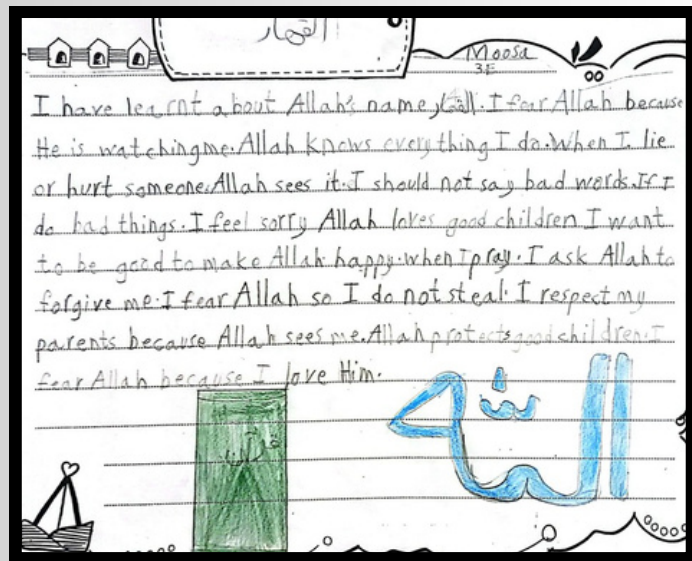 القهار
Moosa
3E
I have learnt about Allah's name القهار. I fear Allah because
He is watching me. Allah knows everything I do. When I lie
or hurt someone. Allah sees it. I should not say bad words. If I
do bad things. I feel sorry Allah loves good children I want
to be good to make Allah happy. when I pray. I ask Allah to
forgive me. I fear Allah so I do not steal. I respect my
parents because Allah sees me. Allah protects good children. I
fear Allah because I love Him.
قرآن
الله